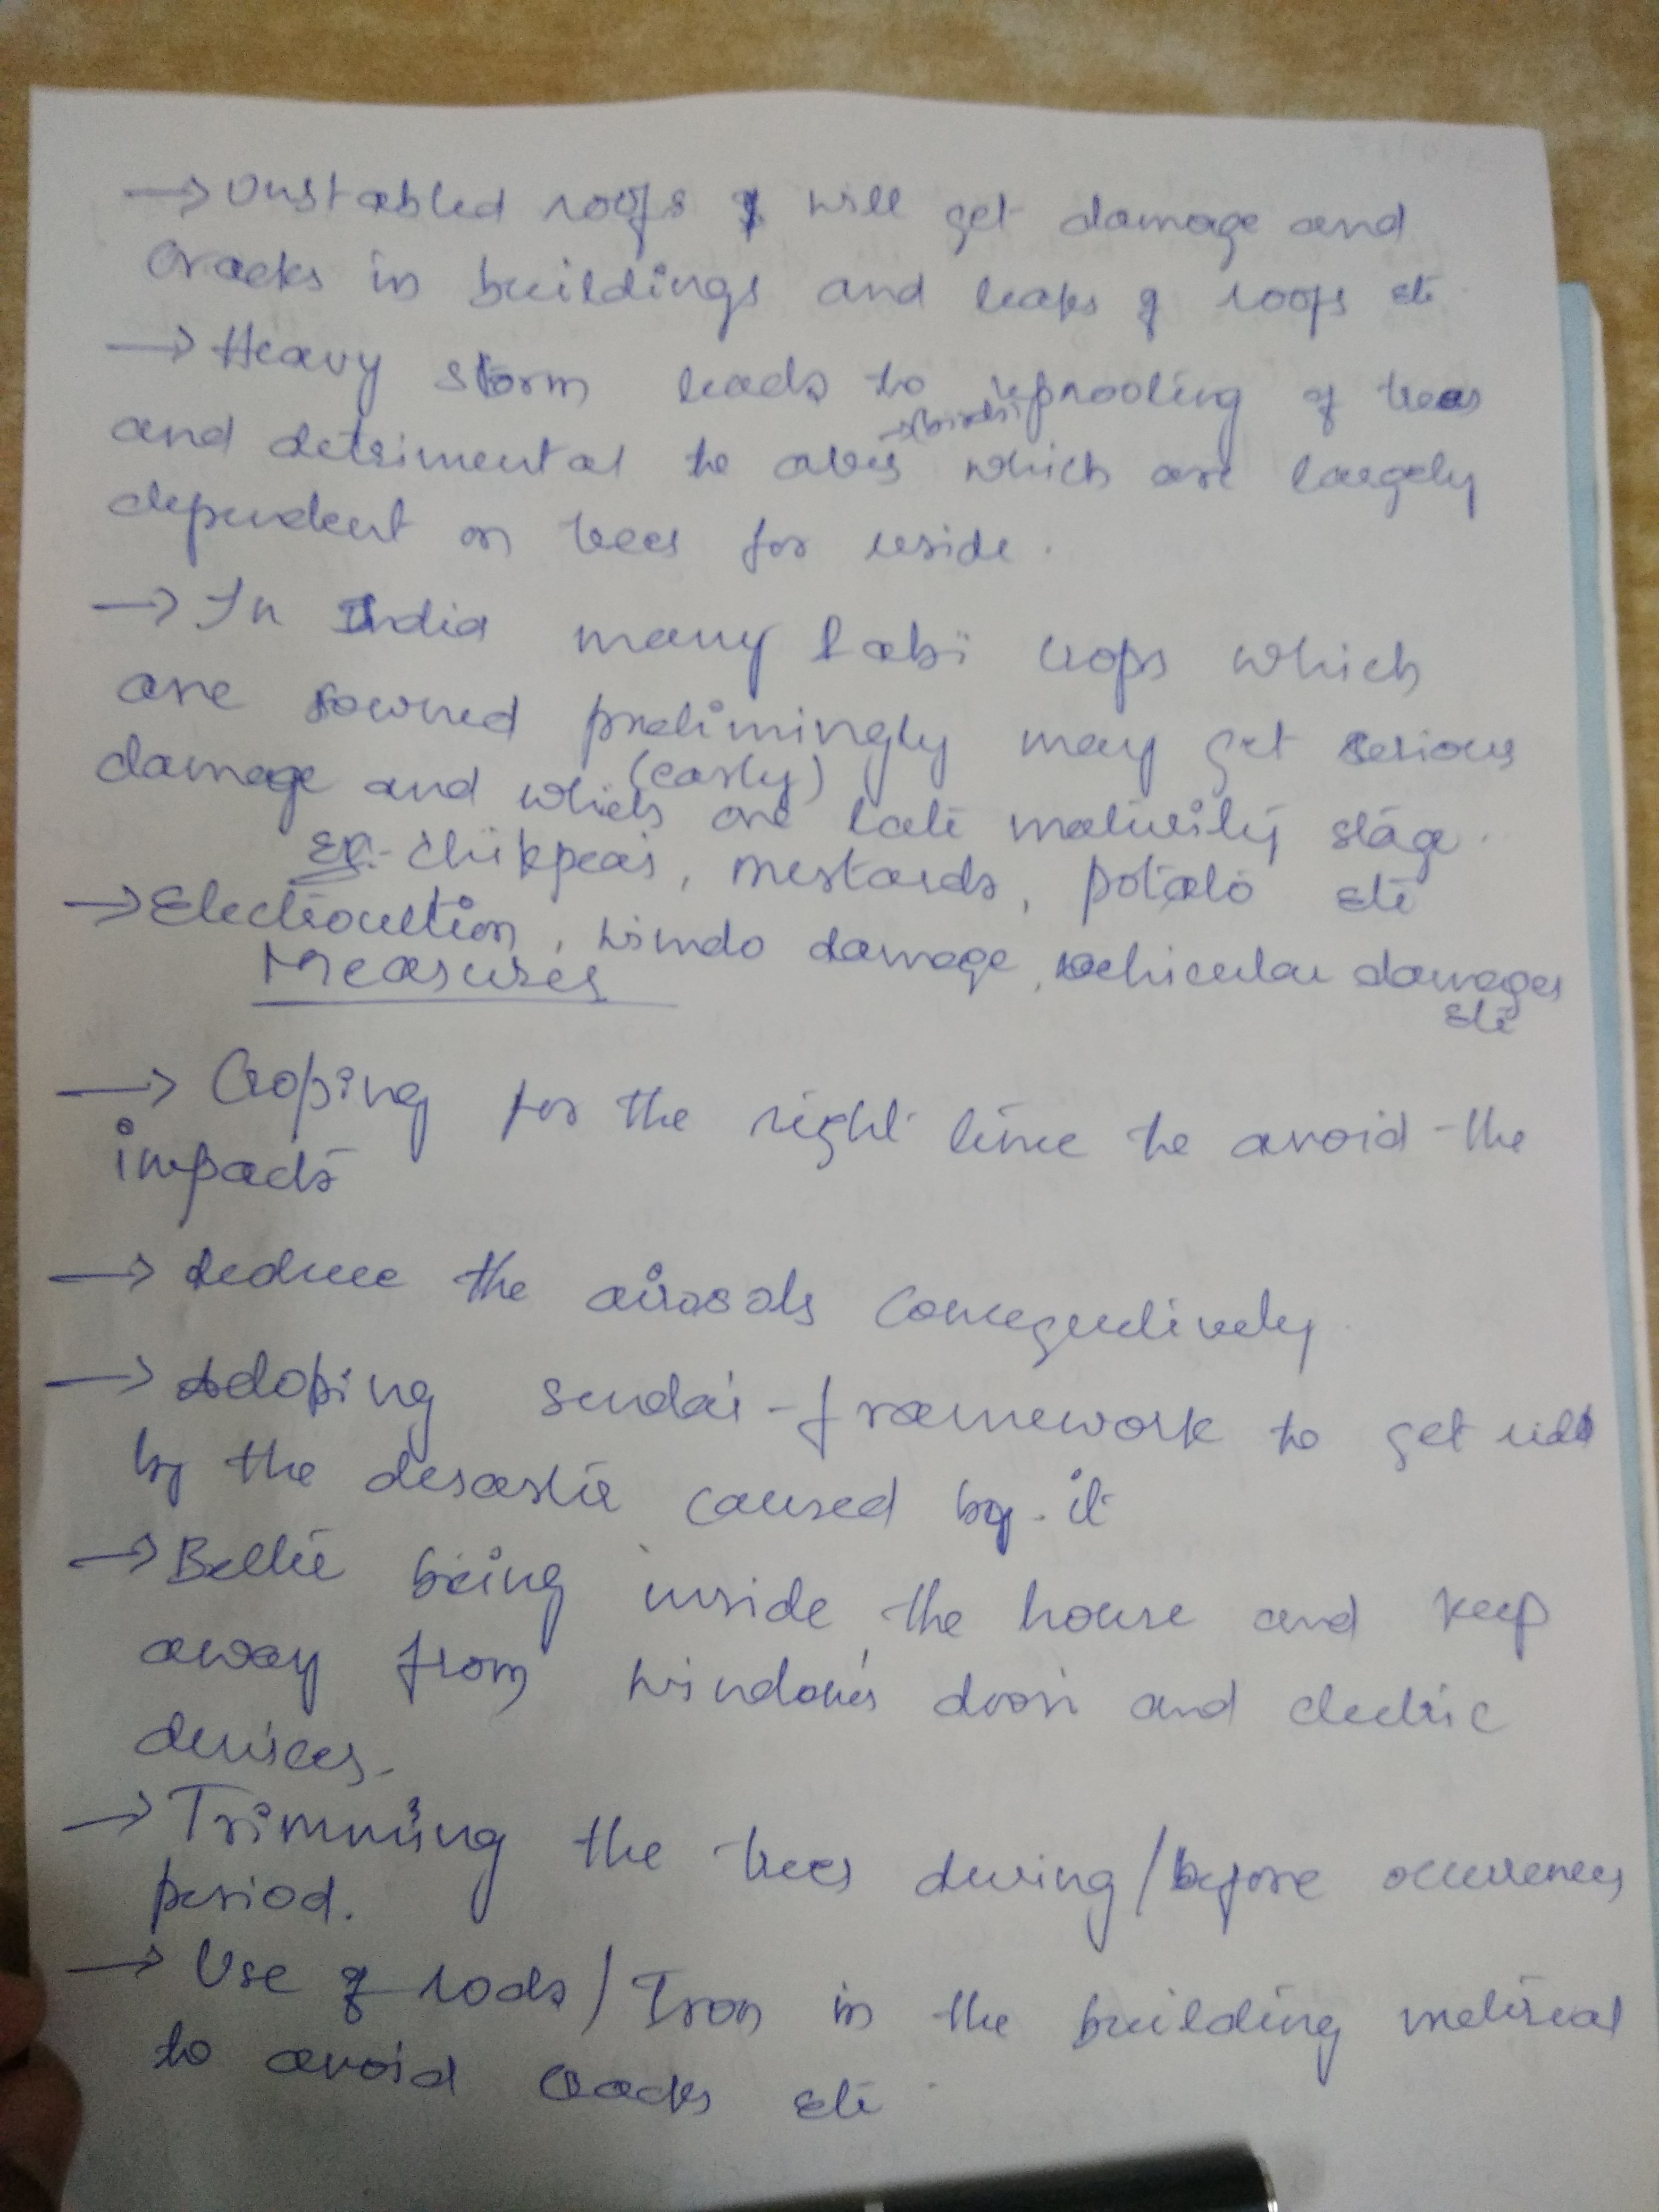 → Unstabled roofs will get damage and
cracks in buildings and leaks of roofs etc
→ Heavy storm leads to uprooting of trees
→ birds
and detrimental to aves which are largely
dependent on trees for reside.
→ In India many Rabi crops which
are sowned prelimingly may get serious
(early)
damage and which are late maturity stage.
Ex:- Chikpeas, mustards, potato etc
→ Electrocution, windo damage, vehicular damages
etc
Measures
→ Croping for the right time to avoid the
impacts
→ Reduce the airosols consequtively.
→ Adoping sendai-framework to get rid
by the desaster caused by it
→ Better being inside the house and keep
away from windows, doors and electric
devices.
→ Trimming the trees during/before occurences
period.
→ Use of rods/Iron in the building material
to avoid cracks etc.